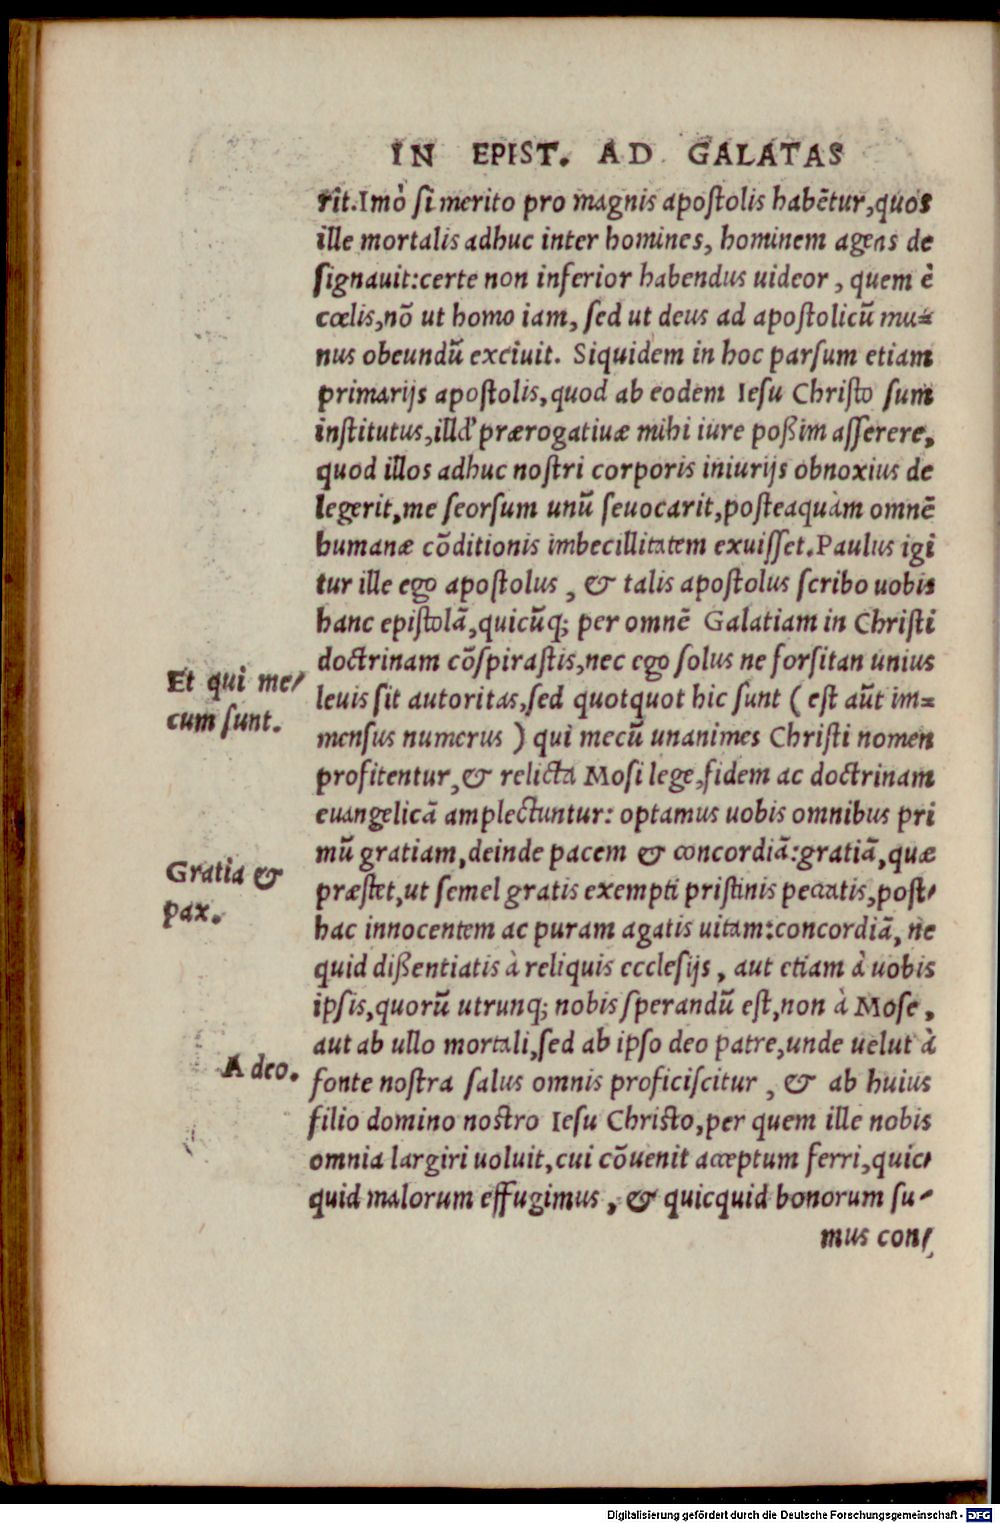 IN EPIST. AD GALATAS
rit. Imò si merito pro magnis apostolis habẽtur, quos
ille mortalis adhuc inter homines, hominem agens de
signauit: certe non inferior habendus uideor, quem è
cœlis, nõ ut homo iam, sed ut deus ad apostolicũ mu=
nus obeundũ exciuit. Siquidem in hoc par sum etiam
primarijs apostolis, quod ab eodem Iesu Christo sum
institutus, illd' prærogatiuæ mihi iure poßim asserere,
quod illos adhuc nostri corporis iniurijs obnoxius de
legerit, me seorsum unũ seuocarit, posteaquàm omnẽ
humanæ cõditionis imbecillitatem exuisset. Paulus igi
tur ille ego apostolus, & talis apostolus scribo uobis
hanc epistolã, quicũq; per omnẽ Galatiam in Christi
doctrinam cõspirastis, nec ego solus ne forsitan unius
Et qui me/
leuis sit autoritas, sed quotquot hic sunt ( est aũt im=
cum sunt.
mensus numerus ) qui mecũ unanimes Christi nomen
profitentur, & relicta Mosi lege, fidem ac doctrinam
euangelicã amplectuntur: optamus uobis omnibus pri
mũ gratiam, deinde pacem & concordiã: gratiã, quæ
Gratia &
præstet, ut semel gratis exempti pristinis peccatis, post/
pax.
hac innocentem ac puram agatis uitam: concordiã, ne
quid dißentiatis à reliquis ecclesijs, aut etiam à uobis
ipsis, quorũ utrunq; nobis sperandũ est, non à Mose,
aut ab ullo mortali, sed ab ipso deo patre, unde uelut à
A deo.
fonte nostra salus omnis proficiscitur, & ab huius
filio domino nostro Iesu Christo, per quem ille nobis
omnia largiri uoluit, cui cõuenit acceptum ferri, quic/
quid malorum effugimus, & quicquid bonorum su/
mus con/
Digitalisierung gefördert durch die Deutsche Forschungsgemeinschaft - DFG